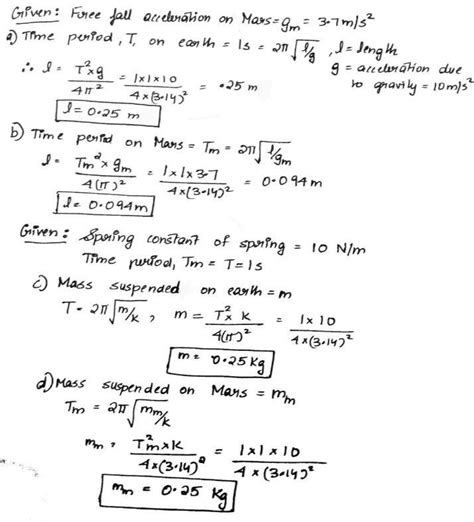 Given: Free fall acceleration on Mars = gₘ = 3.7 m/s²
a) Time period, T, on earth = 1s = 2π√(l/g) , l = length
g = acceleration due to gravity = 10 m/s²
∴ l = (T² × g)/(4π²) = (1×1×10)/(4×(3.14)²) = .25 m
l = 0.25 m
b) Time period on Mars = Tₘ = 2π√(l/gₘ)
l = (Tₘ² × gₘ)/(4(π)²) = (1×1×3.7)/(4×(3.14)²) = 0.094 m
l = 0.094 m
Given: Spring constant of spring = 10 N/m
Time period, Tₘ = T = 1s
c) Mass suspended on earth = m
T = 2π√(m/k) , m = (T² × k)/(4(π)²) = (1×10)/(4×(3.14)²)
m = 0.25 Kg
d) Mass suspended on Mars = mₘ
Tₘ = 2π√(mₘ/k)
mₘ = (Tₘ² × k)/(4×(3.14)²) = (1×1×10)/(4×(3.14)²)
mₘ = 0.25 Kg